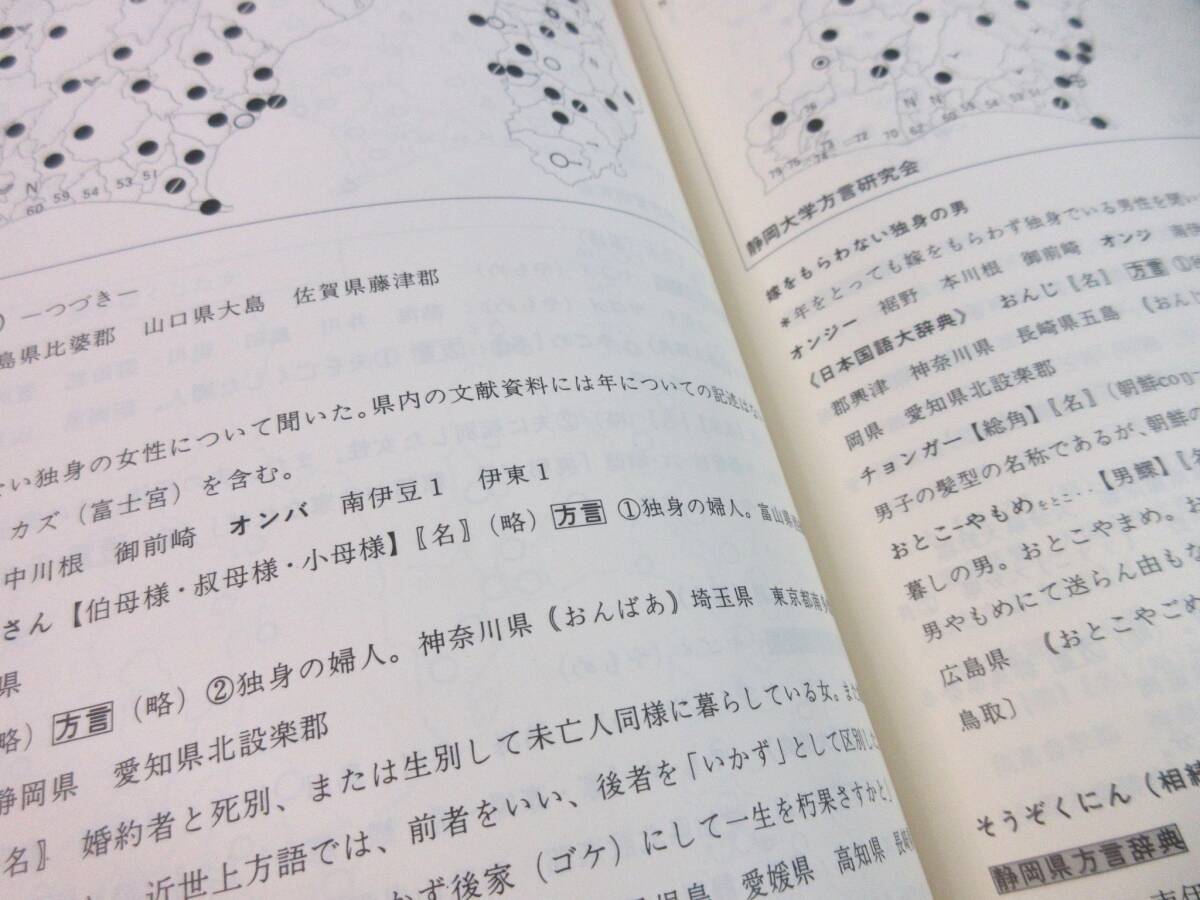 N
60 59 54 53 51
）－つづき－
島県比婆郡　山口県大島　佐賀県藤津郡
い独身の女性について聞いた。県内の文献資料には年についての記述は
カズ（富士宮）を含む。
中川根　御前崎　オンバ　南伊豆１　伊東１
さん【伯母様・叔母様・小母様】〖名〗（略）方言①独身の婦人。富山県
県
略）方言（略）②独身の婦人。神奈川県《おんばあ》埼玉県　東京都南
静岡県　愛知県北設楽郡
名〗婚約者と死別、または生別して未亡人同様に暮らしている女。また
近世上方語では、前者をいい、後者を「いかず」として区別した
かず後家（ゴケ）にして一生を朽果さすかと」
児島　愛媛県　高知県　長崎
N N
79 75 74 73 72 70 62 60 59 54 53 51
静岡大学方言研究会
嫁をもらわない独身の男
＊年をとっても嫁をもらわず独身でいる男性を聞い
オンジー　裾野　本川根　御前崎　オンジ　南伊
《日本国語大辞典》　おんじ〖名〗方言①
郡興津　神奈川県　長崎県五島　《おん
岡県　愛知県北設楽郡
チョンガー【総角】〖名〗（朝鮮
男子の髪型の名称であるが、朝鮮の
おとこ－やもめをとこ‥【男鰥】〖
暮しの男。おとこやまめ。お
男やもめにて送らん由もな
広島県　《おとこやごめ
鳥取〕
そうぞくにん（相続
静岡県方言辞典